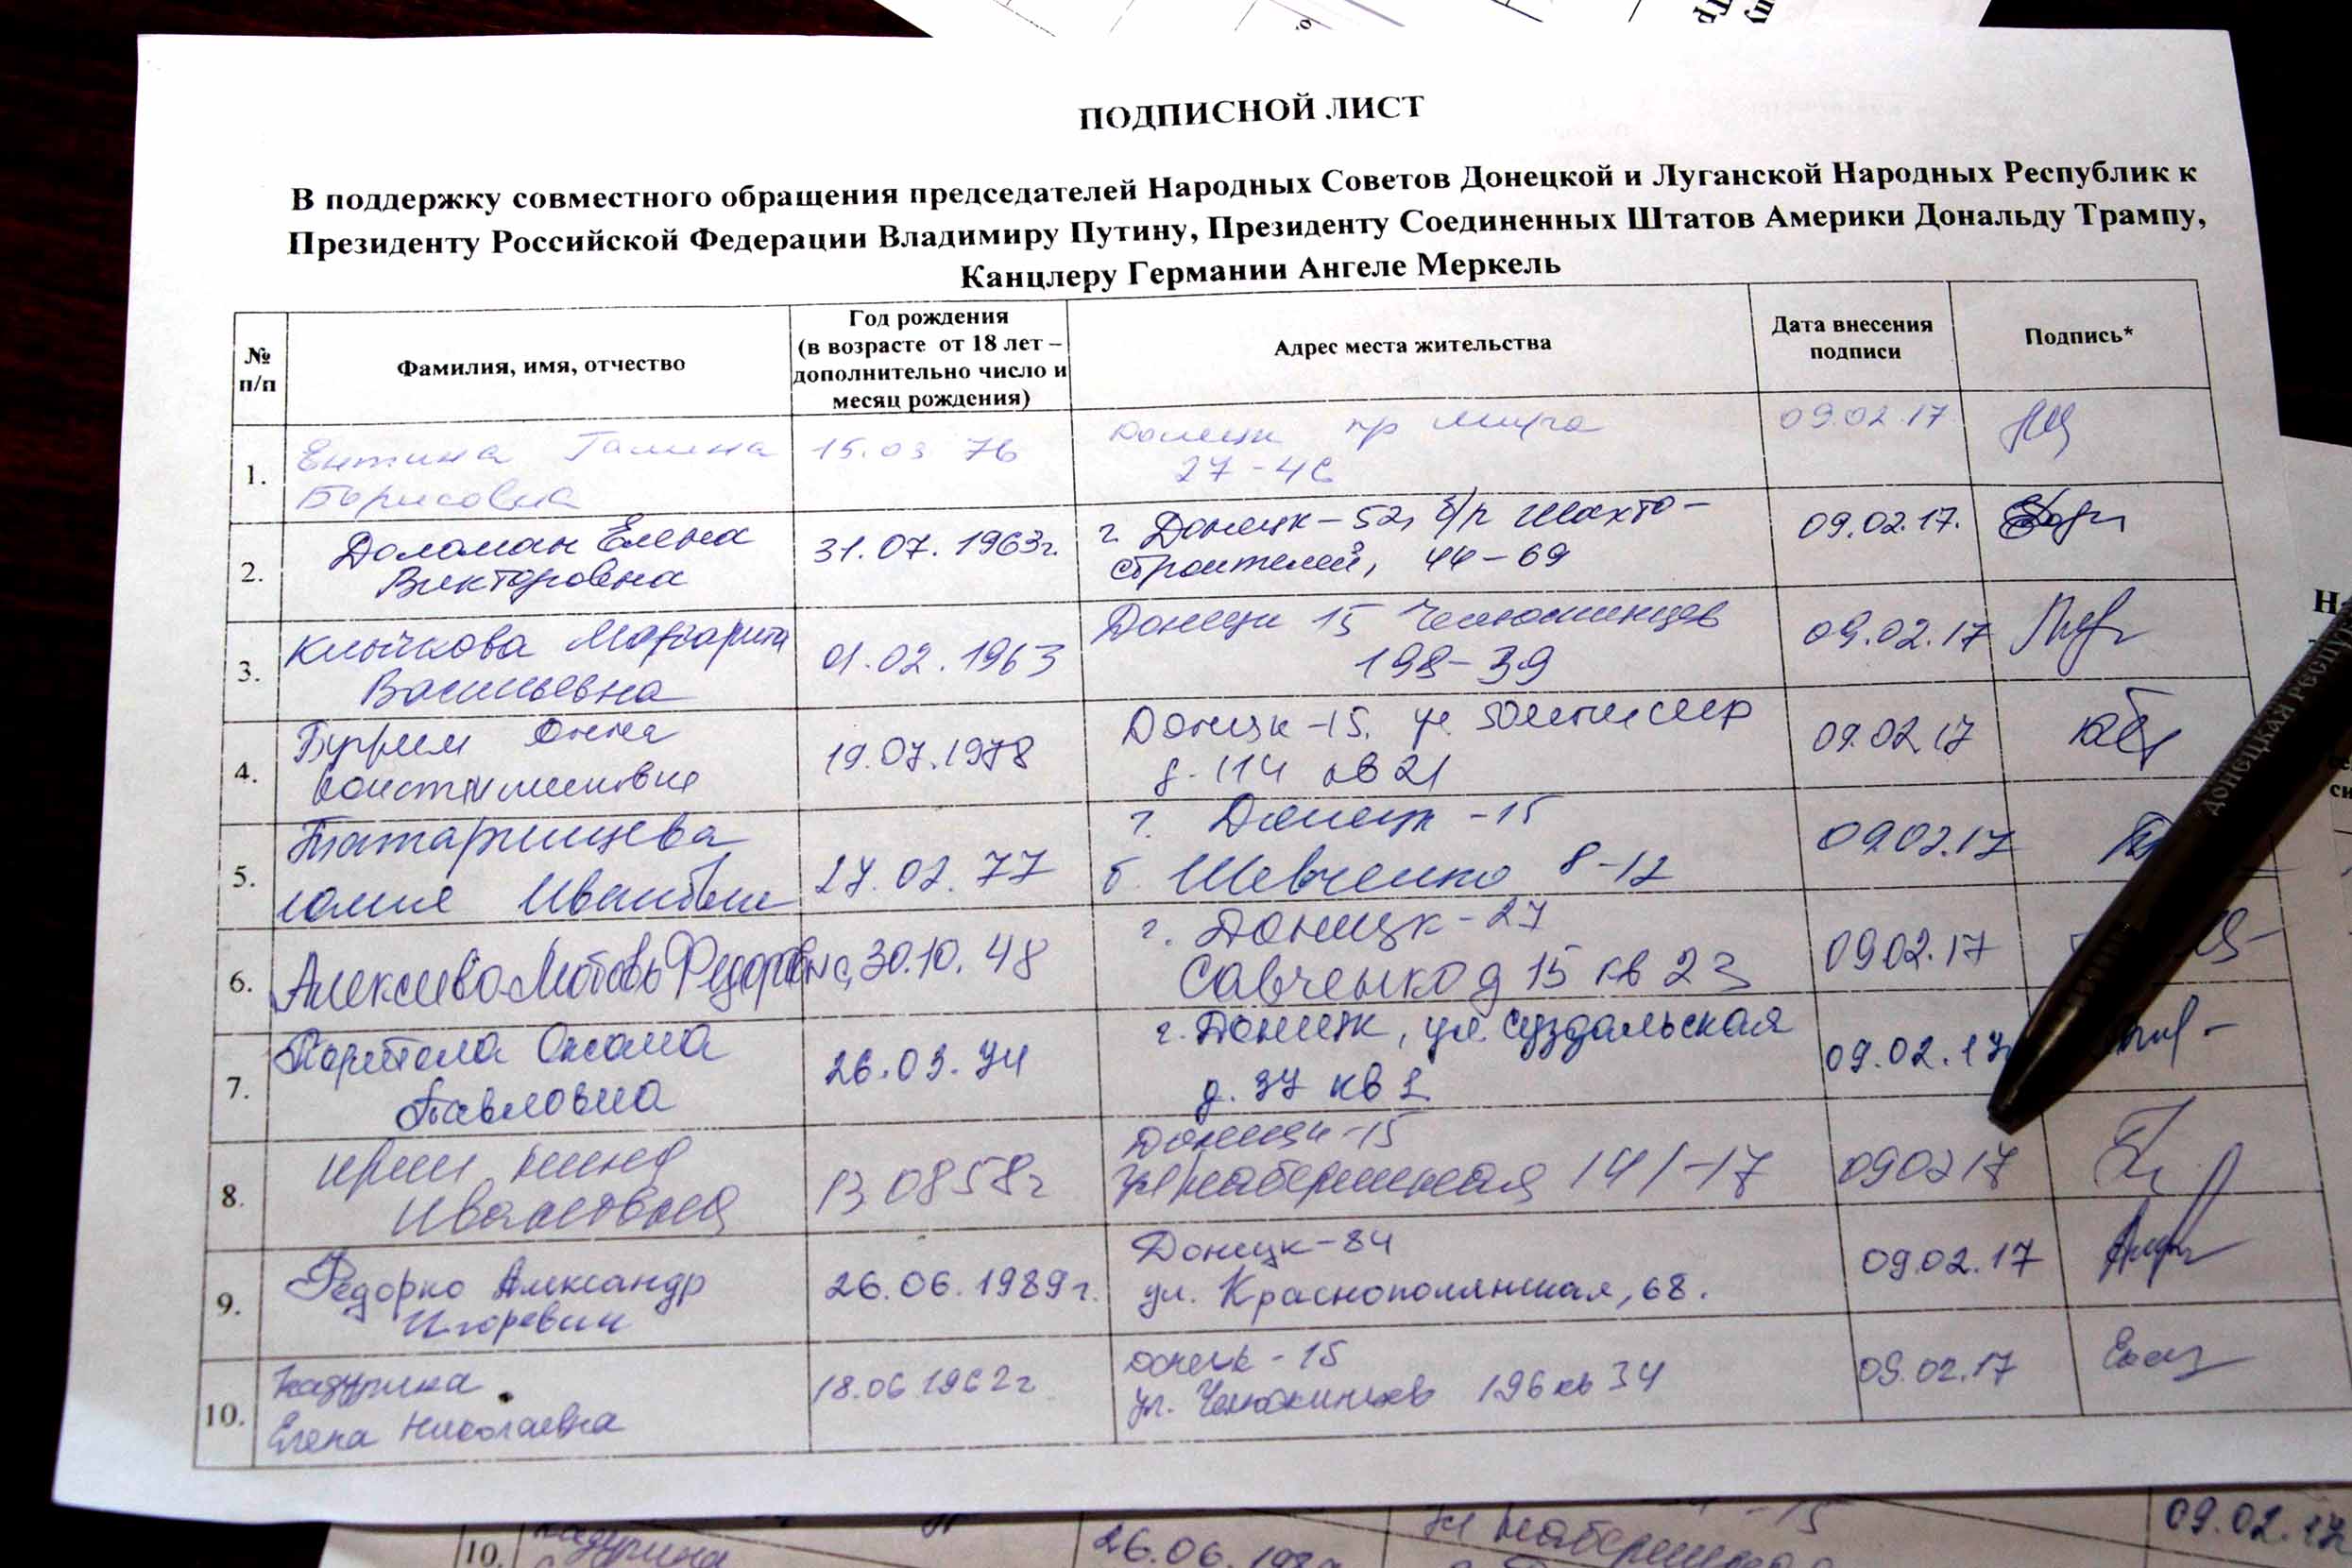 ПОДПИСНОЙ ЛИСТ
В поддержку совместного обращения председателей Народных Советов Донецкой и Луганской Народных Республик к
Президенту Российской Федерации Владимиру Путину, Президенту Соединенных Штатов Америки Дональду Трампу,
Канцлеру Германии Ангеле Меркель
№ п/п
Фамилия, имя, отчество
Год рождения
(в возрасте от 18 лет –
дополнительно число и
месяц рождения)
Адрес места жительства
Дата внесения
подписи
Подпись*
1.
Ентина Галина
Борисовна
15.03 76
Донецк пр Мира
27-46
09.02.17
2.
Доломан Елена
Викторовна
31.07.1963г.
г. Донецк-52, б/р Шахто-
строителей, 44-69
09.02.17.
3.
Клычкова Маргарита
Васильевна
01.02.1963
Донецк 15 Челюскинцев
198-39
09.02.17
4.
Анна
Константиновна
19.07.1978
Донецк-15.
д. 114 кв 21
09.02.17
5.
Татаринцева
Юлия Ивановна
27.02.77
г. Донецк-15
б. Шевченко 8-12
09.02.17
6.
Алексеева Любовь Федоровна
30.10.48
г. Донецк-27
Савченко д 15 кв 23
09.02.17
7.
Оксана
Павловна
26.03.74
г. Донецк, ул. Суздальская
д. 37 кв 1
09.02.17
8.
Ивановна
13 08 58г
Донецк-15
набережная 141-17
09 02 17
9.
Федорко Александр
Игоревич
26.06.1989г.
Донецк-84
ул. Краснополянская, 68.
09.02.17
10.
Кадурина
Елена Николаевна
18.06 1962г
Донецк-15
ул. Челюскинцев 196 кв 34
09.02.17
ДОНЕЦКАЯ РЕСПУ
10.
Кадурина
26.06.198
набережная
09.02.17